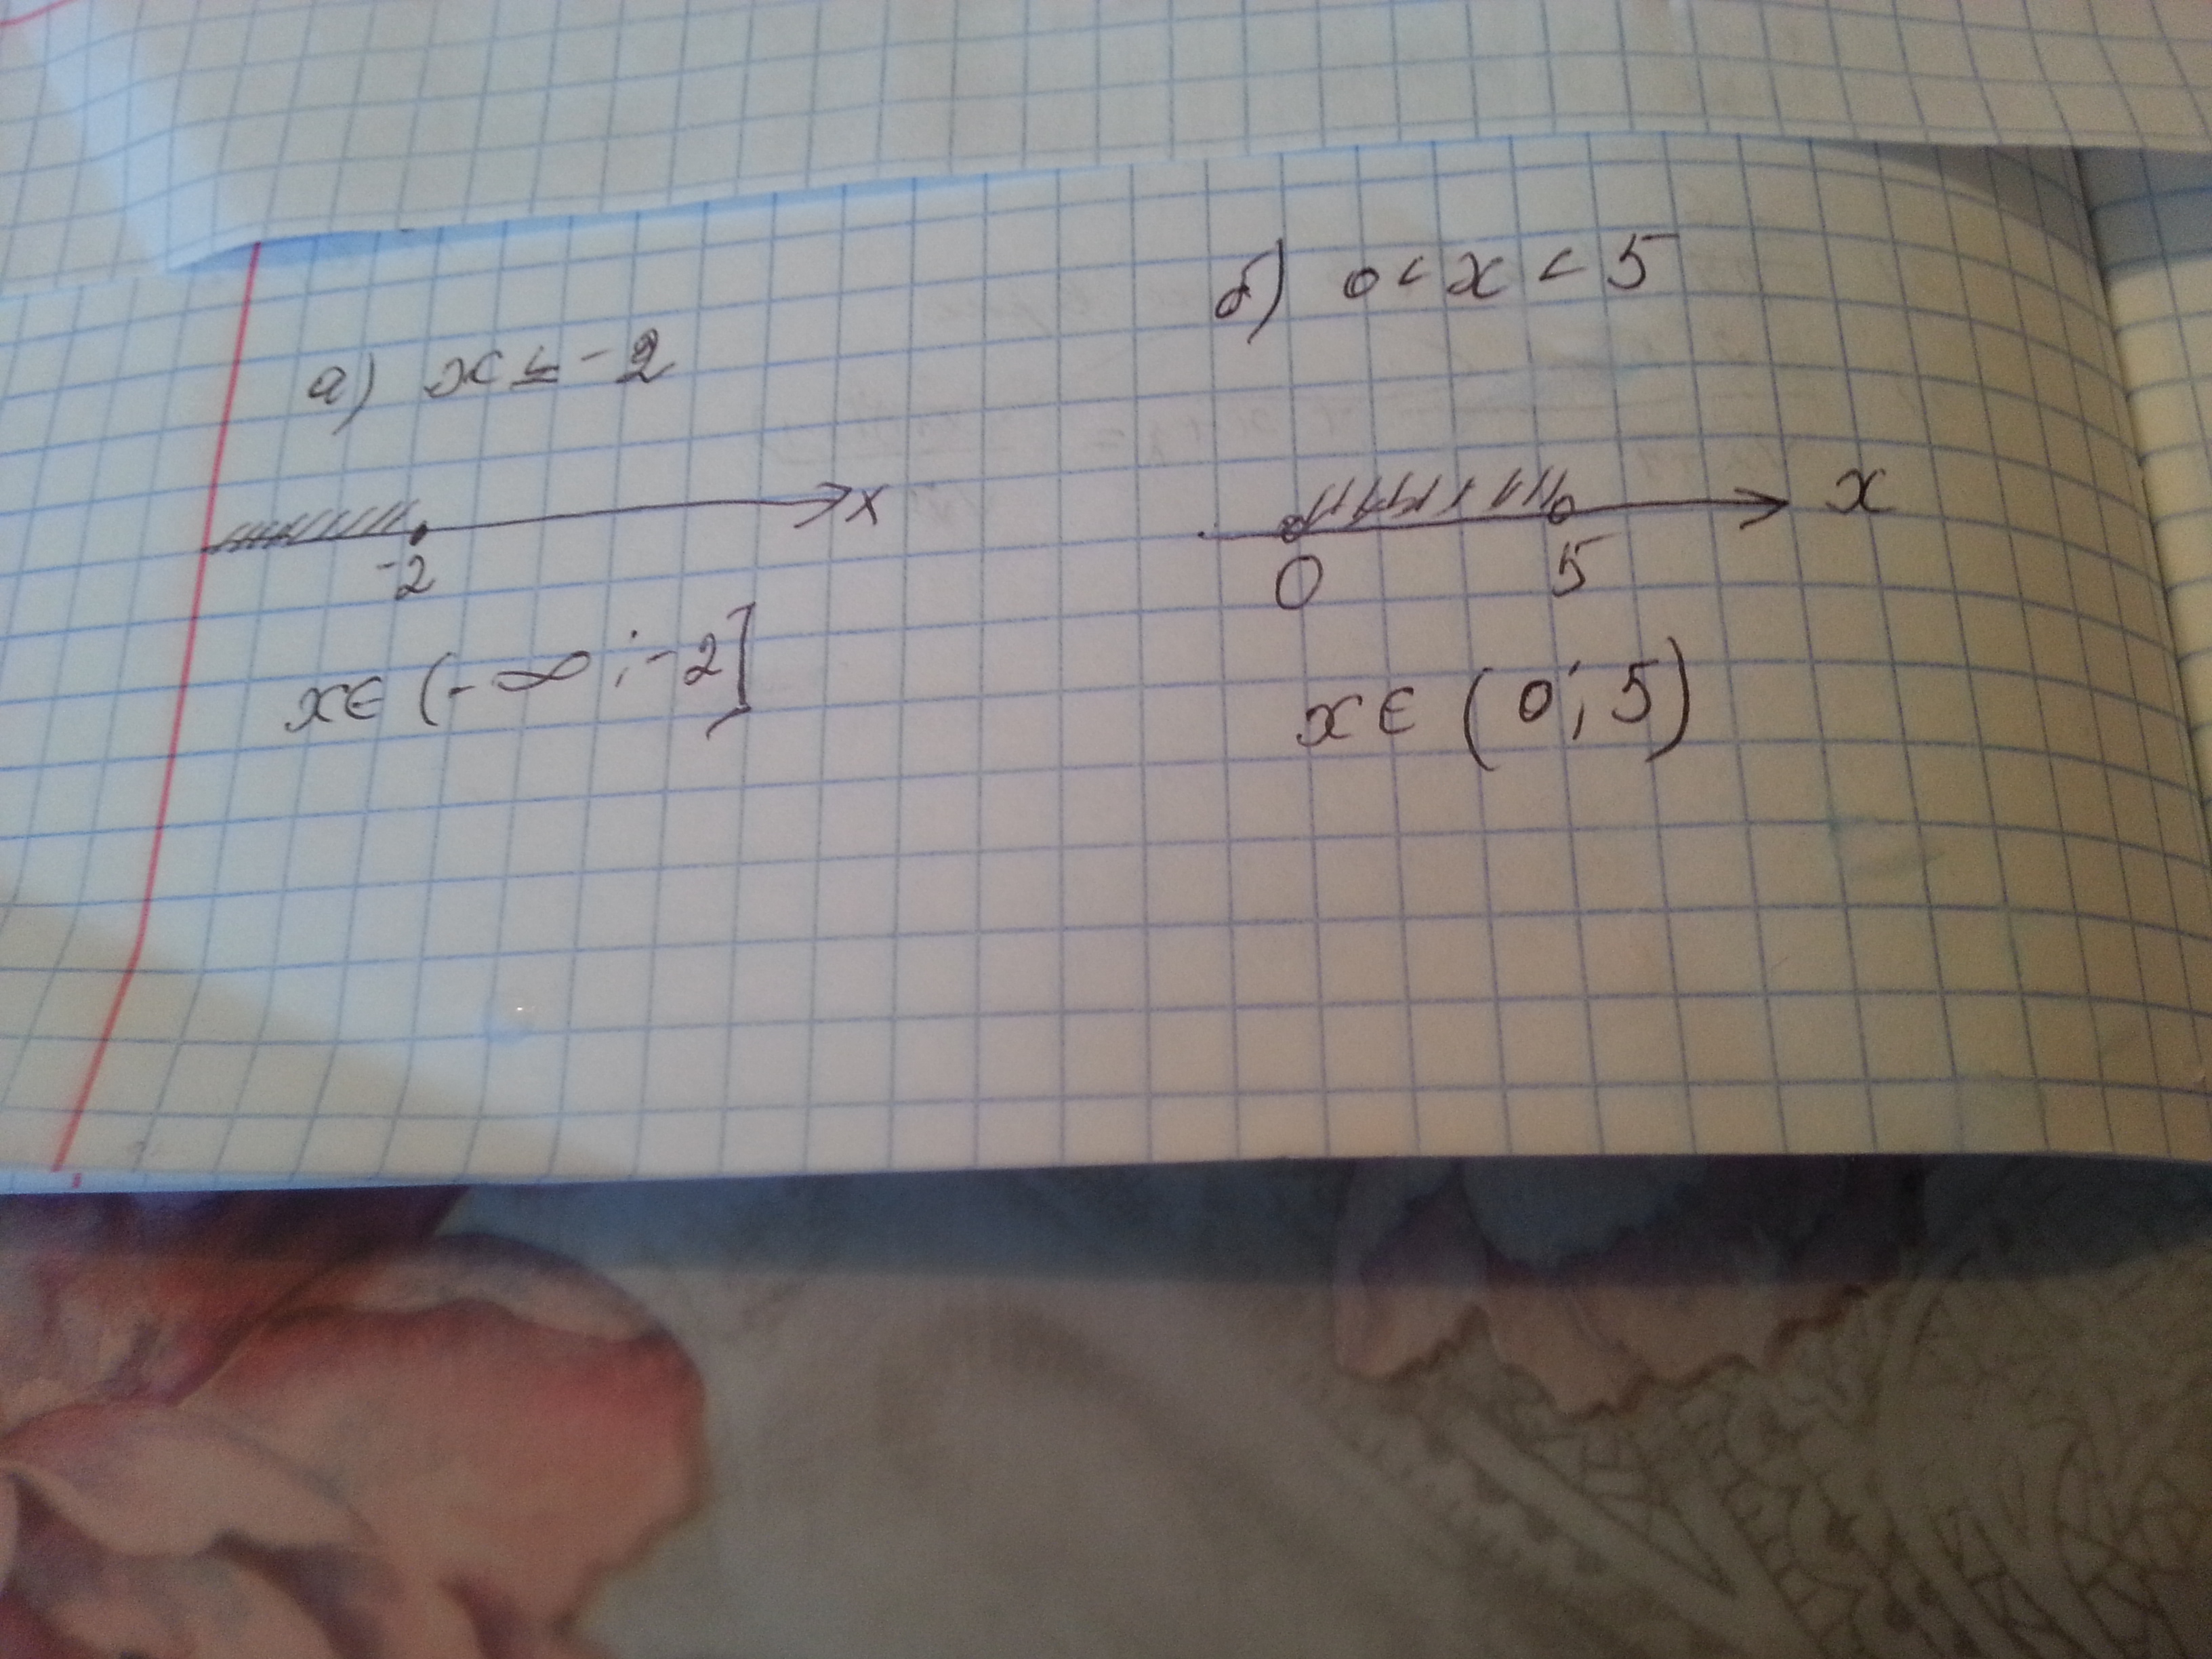 а) x ≤ -2
x
-2
x ∈ (-∞; -2]
б) 0 < x < 5
x
0 5
x ∈ (0; 5)